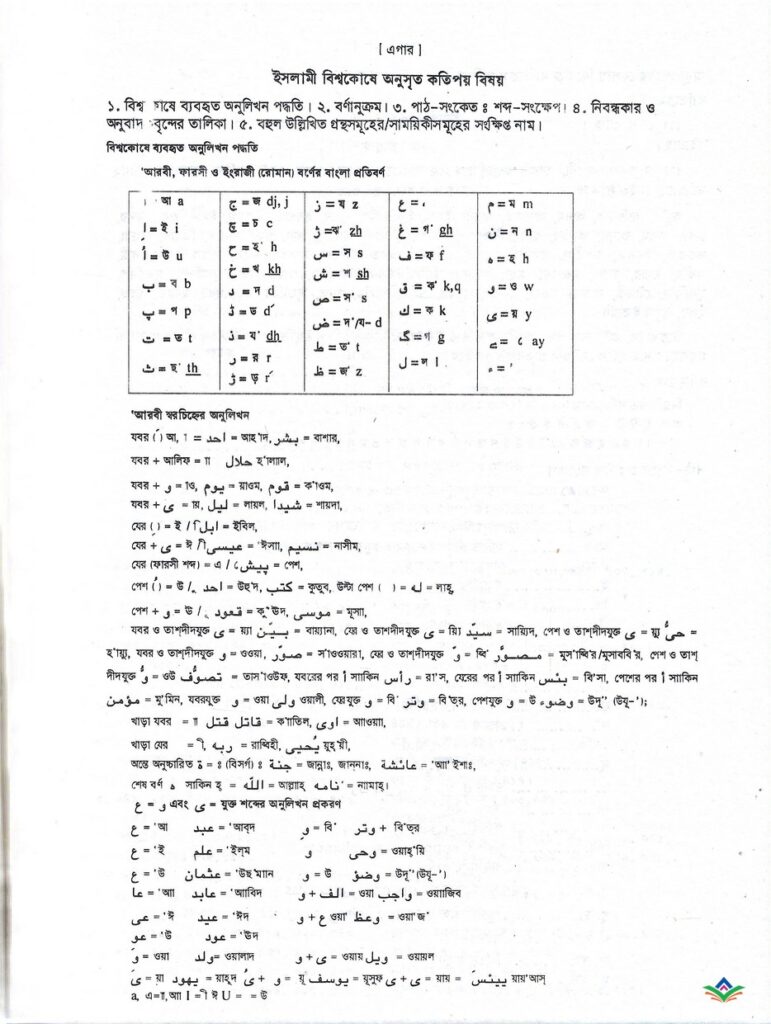 [ এগার ]
ইসলামী বিশ্বকোষে অনুসৃত কতিপয় বিষয়
১. বিশ্ব কোষে ব্যবহৃত অনুলিখন পদ্ধতি। ২. বর্ণানুক্রম। ৩. পাঠ-সংকেত ঃ শব্দ-সংক্ষেপ। ৪. নিবন্ধকার ও
অনুবাদ বৃন্দের তালিকা। ৫. বহুল উল্লিখিত গ্রন্থসমূহের/সাময়িকীসমূহের সংক্ষিপ্ত নাম।
বিশ্বকোষে ব্যবহৃত অনুলিখন পদ্ধতি
'আরবী, ফারসী ও ইংরাজী (রোমান) বর্ণের বাংলা প্রতিবর্ণ
ا আ a
اِ = ই i
اُ = উ u
ب = ব b
پ = প p
ت = ত t
ث = ছ' th
ج = জ dj, j
چ = চ c
ح = হ' h
خ = খ kh
د = দ d
ڈ = ড d'
ذ = য' dh
ر = র r
ڑ = ড় r'
ز = য z
ژ =ঝ' zh
س = স s
ش = শ sh
ص = স' s
ض = দ'/য- d
ط = ত' t
ظ = জ' z
ع = ‘
غ = গ' gh
ف = ফ f
ق = ক' k,q
ك = ক k
گ = গ g
ل = ল l
م = ম m
ن = ন n
ه = হ h
و = ও w
ي = য় y
ے = ে ay
ء = '
'আরবী স্বরচিহ্নের অনুলিখন
যবর (َ) আ, া = احد = আহ'াদ, بشر = বাশার,
যবর + আলিফ = াা حلال হ'ালাাল,
যবর + و = াও, يوم = য়াওম, قوم = ক'াওম,
যবর + ى = ায়, ليل = লায়ল, شيدا = শায়দা,
যের (ِ) = ই / ি ابل = ইবিল,
যের + ى = ঈ / ী عيسى = 'ঈসাা, نسيم = নাসীম,
যের (ফারসী শব্দ) = এ / ে پيش = পেশ,
পেশ (ُ) = উ / ু احد = উহ'দ, كتب = কুতুব, উল্টা পেশ ( ) = له = লাহূ,
পেশ + و = ঊ / ূ قعود = কু'ঊদ, موسى = মূসাা,
যবর ও তাশদীদযুক্ত ى = য়্যা بيّن = বায়্যানা, যের ও তাশদীদযুক্ত ى = য়্যি سيّد = সায়্যিদ, পেশ ও তাশদীদযুক্ত ى = য়্যু حىّ =
হ'ায়্যু, যবর ও তাশ্দীদযুক্ত و = ওওয়া, صوّر = স'াওওয়ারা, যের ও তাশ্দীদযুক্ত وّ = ব্বি' مصوّر = মুস'াব্বি'র/মুসাববি'র, পেশ ও তাশ্
দীদযুক্ত وّ = ওউ تصوّف = তাস'াওউফ, যবরের পর أ সাকিন رأس = রা'স, যেরের পর أ সাকিন بئس = বি'সা, পেশের পর أ সাকিন
مؤمن = মু'মিন, যবরযুক্ত و = ওয়া ولى ওয়ালী, যেরযুক্ত و = বি' وتر = বি'ত্র, পেশযুক্ত و = উ وضوء = উদূ' (উযূ-');
খাড়া যবর = াা قاتل قتل = ক'াাতিল, اوى = আাওয়াা,
খাড়া যের = ী, ربه = রাব্বিহী, يُحيى য়ুহ'য়ী,
অন্তে অনুচ্চারিত ة = ঃ (বিসর্গ) ঃ جنة = জান্নাঃ, জান্নাঃ, عائشة = 'আাইশাঃ,
শেষ বর্ণ ه সাকিন হ্ = الله = আল্লাাহ্ نامه = নাামাহ্।
ع = و এবং ى = যুক্ত শব্দের অনুলিখন প্রকরণ
ع = 'আ عبد 'আব্দ و = বি' وتر + বি'ত্র
ع = 'ই علم = 'ইল্ম و وحى = ওয়াহ্'য়ি
ع = 'উ عثمان = 'উছ'মাান و = উ وضؤ = উদূ' (উযূ-')
عا = 'আা عابد = 'আাবিদ و + الف = ওয়াা واجب = ওয়াাজিব
عى = 'ঈ عيد = 'ঈদ و + ع ওয়া' وعظ = ওয়া'জ'
عو = 'ঊ عود = 'ঊদ
و = ওয়া ولد= ওয়ালাদ و + ى = ওয়ায় ويل = ওয়ায়ল
ى = য়া يهود = য়াহূদ ى + و = য়ূ يوسف = য়ূসুফ ى + ى = য়ায় = ييئس য়ায়'আস্
a, এ=া,আা I = ী ঈ U = ূ = ঊ